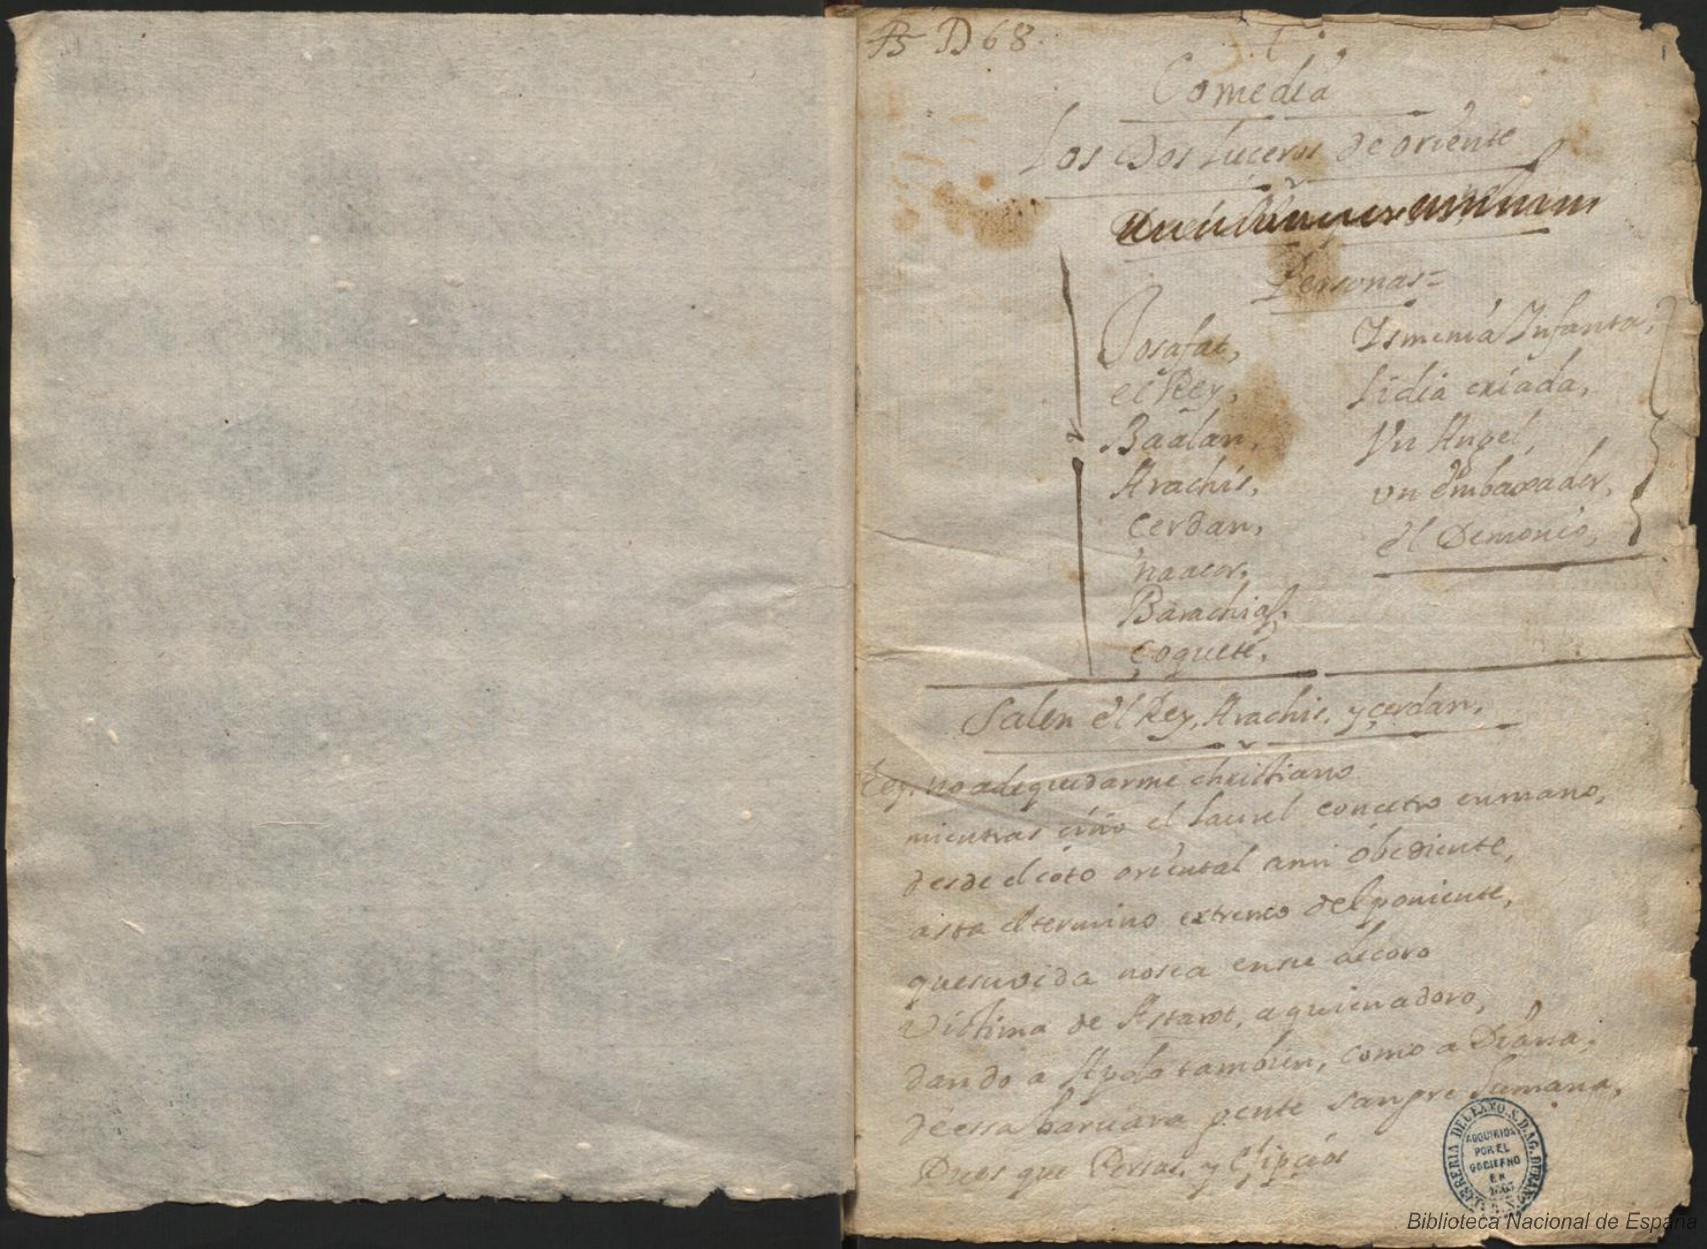 D 68.
1
Comedia
Los Dos luceros de oriente
Personas=
Josafat,
el Rey,
Baalan,
Arachis,
Cerdan,
naacor,
Barachias,
Coquete,
Ismenia Infanta,
Lidia criada,
Vn Angel,
vn embaxador,
el Demonio,
Salen el Rey, Arachis, y çerdan,
Rey. no adequedarme christiano
mientras ciño el laurel concetro enmano,
desde el coto oriental ami obediente,
asta eltermino extremo delponiente,
quesuvida nosea ensu decoro
victima de Astarot, aquienadoro,
dando a Apolo tambien, como a Diana,
de essa baruara gente sangre humana,
Pues que Persas, y Ejipçios
LIBRERIA DEL EXMO. S. D. AG. DURAN
ADQUIRIDA
POR EL
GOBIERNO
EN
1863
Biblioteca Nacional de España